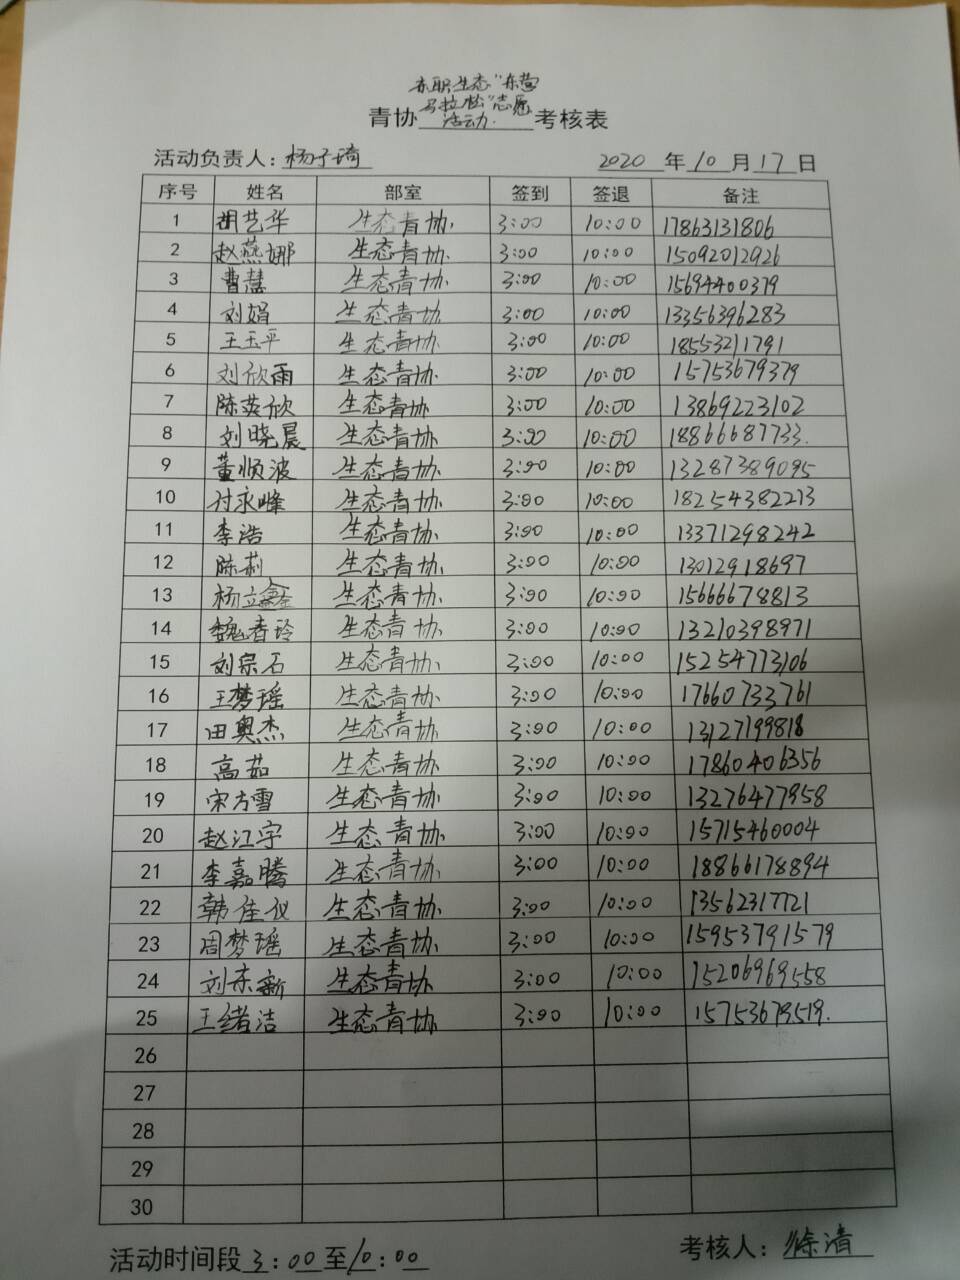 东职生态"东营
马拉松"志愿
青协 活动. 考核表
活动负责人：杨子琦 2020 年 10 月 17 日
序号 姓名 部室 签到 签退 备注
1 胡艺华 生态青协. 3:00 10:00 17863131806
2 赵燕娜 生态青协. 3:00 10:00 15092012926
3 曹慧 生态青协. 3:00 10:00 15694400379
4 刘娟 生态青协 3:00 10:00 13356396283
5 王玉平 生态青协. 3:00 10:00 18553211791
6 刘欣雨 生态青协. 3:00 10:00 15753679379
7 陈英欣 生态青协. 3:00 10:00 13869223102
8 刘晓晨 生态青协. 3:00 10:00 18866687733.
9 董顺波 生态青协. 3:00 10:00 13287389095
10 付永峰 生态青协. 3:00 10:00 18254382213
11 李浩 生态青协. 3:00 10:00 13371298242
12 陈莉 生态青协. 3:00 10:00 13012918697
13 杨立鑫 生态青协. 3:00 10:00 15666678813
14 魏春玲 生态青协. 3:00 10:00 13210398971
15 刘宗石 生态青协. 3:00 10:00 15254773106
16 王梦瑶 生态青协. 3:00 10:00 17660733761
17 田奥杰 生态青协. 3:00 10:00 13127199818
18 高茹 生态青协. 3:00 10:00 17860406356
19 宋方雪 生态青协. 3:00 10:00 13276477958
20 赵江宇 生态青协. 3:00 10:00 15715460004
21 李嘉腾 生态青协. 3:00 10:00 18866178894
22 韩佳仪 生态青协. 3:00 10:00 13562317721
23 周梦瑶 生态青协. 3:00 10:00 15953791579
24 刘东新 生态青协. 3:00 10:00 15206969558
25 王绪洁 生态青协. 3:00 10:00 15753679519.
26
27
28
29
30
活动时间段 3：00 至 10：00 考核人：徐清